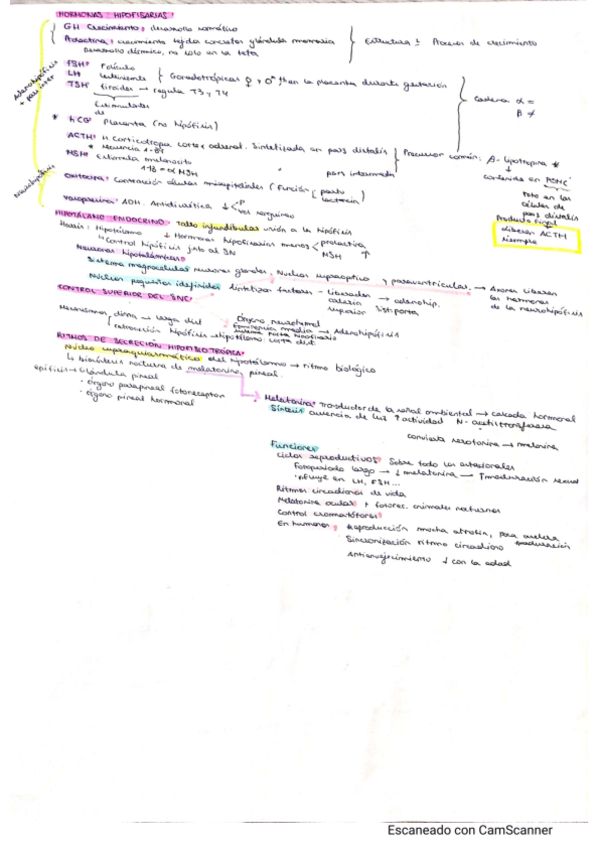 HORMONAS HIPOFISARIAS:
GH Crecimiento: desarrollo somático
Prolactina: crecimiento tejidos concretos glándula mamaria
Desarrollo dérmico, no solo en la teta
Estructura ! Proceso de crecimiento
Adenohipófisis
+ pars inter
FSH: Folículo
LH luteinizante
TSH: tiroides → regula T3 y T4
Gonadotrópicas ♀ y ♂ than la placenta durante gestación
Cadena α =
β ≠
Estimulantes
de
* hCG: Placenta (no hipófisis)
ACTH: H. Corticotropa. Corteza adrenal. Sintetizada en pars distalis
* secuencia 1-39
MSH: Estimula melanocito
1-13 = α MSH
pars intermedia
Precursor común: β-lipotropina *
contenida en POMC
Esto en las
células de
pars distalis
Producto final
liberan ACTH
siempre
Neurohipófisis
Oxitocina: Contracción células mioepiteliales (Función parto
lactancia)
Vasopresina: ADH. Antidiurética ↓ < P
Vol sanguíneo
HIPOTÁLAMO ENDOCRINO: Tallo infundibular unión a la hipófisis
Hipotálamo ↓ Hormonas hipofisarias menos < prolactina
MSH ↑
↳ Control hipófisis jnto al SN
Neuronas hipotalámicas:
Sistema magnocelular neuronas grandes, Nucleos supraóptico y paraventricular, → Axones liberan
las hormonas
de la neurohipófisis
Núcleos pequeños idefinidos sintetiza factores - liberadores → adenohip.
superior Sist. porta
CONTROL SUPERIOR DEL SNC:
Mecanismos, dina → larga dist
Órgano neurohemal
Eminencia media → Adenohipófisis
sistema porta hipofisario
hipófisis → hipotálamo: corta dist
RITMOS DE SECRECIÓN HIPOFISOTRÓPICA:
Núcleo supraquiasmático del hipotálamo → ritmo biológico
↳ Biosíntesis nocturna de melatonina, pineal.
epífisis → Glándula pineal
· órgano parapineal fotorreceptor
· órgano pineal hormonal
Melatonina: Transductor de la señal ambiental → cascada hormonal
Síntesis ausencia de luz ↑ actividad N-acetiltransferasa
convierte serotonina → melatonina
Funciones
Ciclos reproductivos: Sobre todo los estacionales
Fotoperiodo largo → ↓ melatonina → ↑ maduración sexual
influye en LH, FSH...
Ritmos circadianos de vida
Melatonina ocular: ↑ fotorec. animales nocturnos
Control cromatóforos:
En humanos: Reproducción mucha atrofia,
Sincronización ritmo circadiano
Antienvejecimiento ↓ con la edad
Escaneado con CamScanner